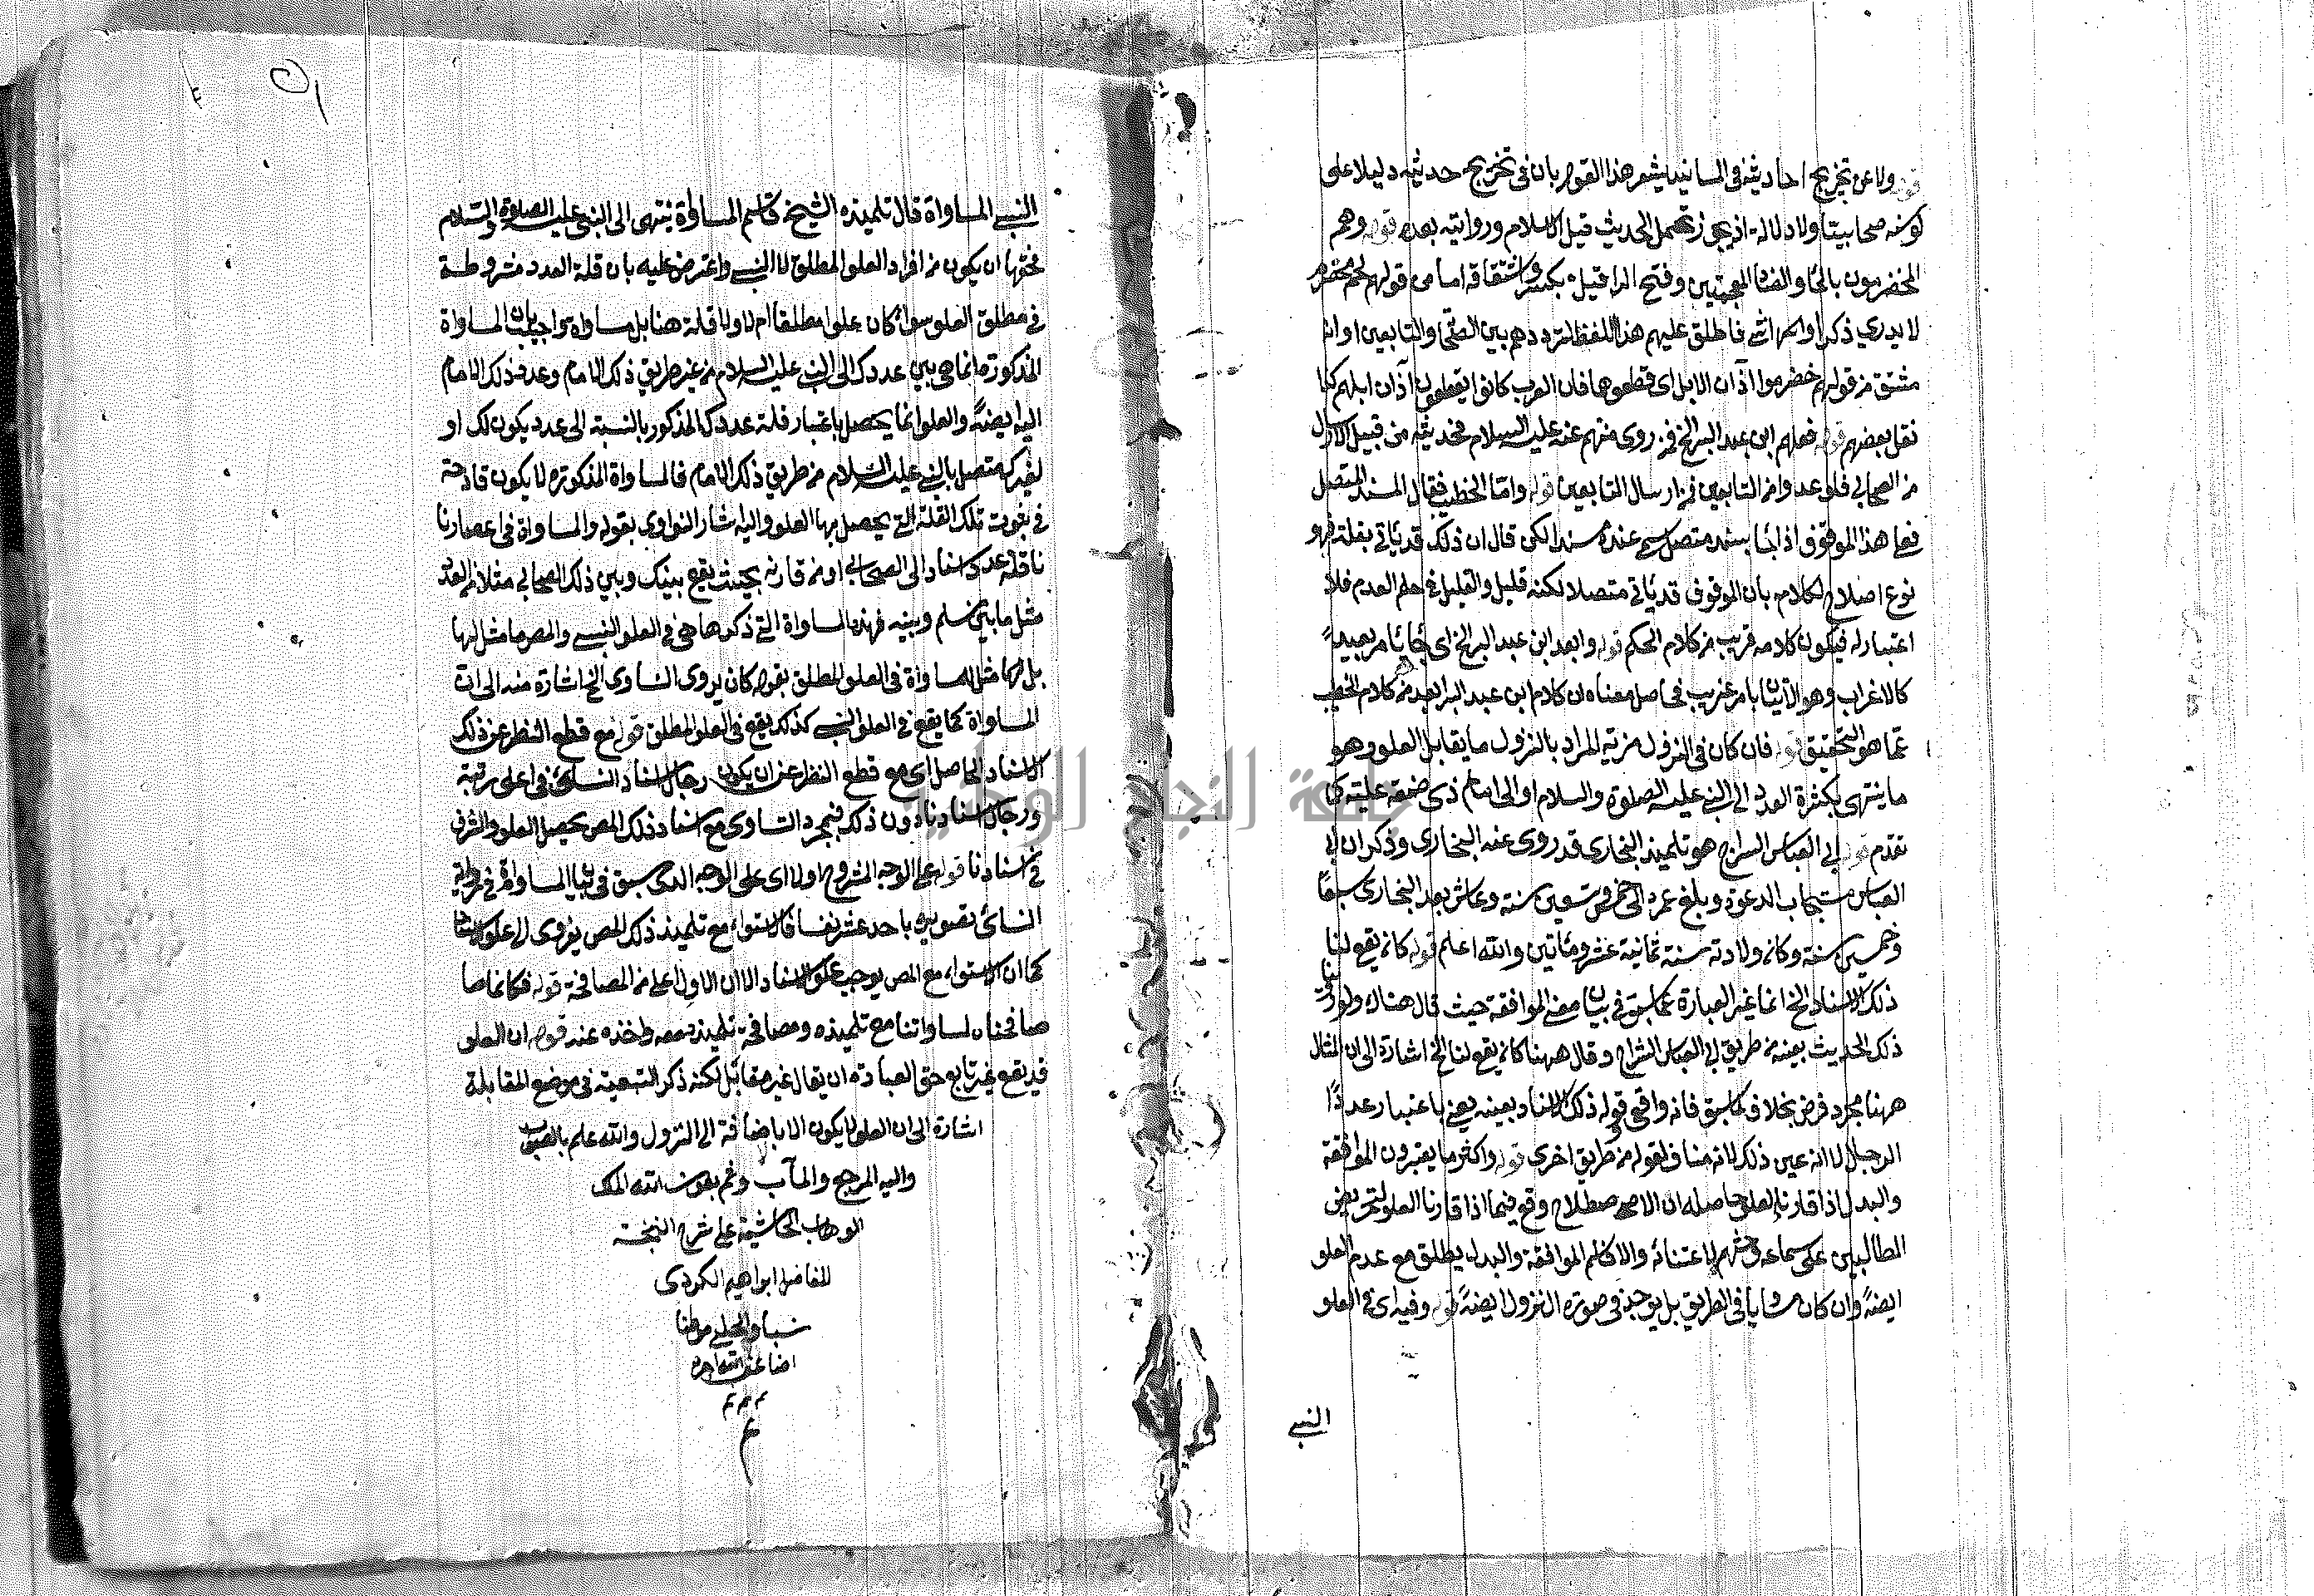 قوله ولا عن تخريج احاديثه في المسانيد يشعر هذا القول بان في تخريج حديثه دليلا على
كونه صحابيتا ولا دلالة اذ يجوز تحمل الحديث قبل الاسلام وروايته بعده قوله وهم
المخضرمون بالخاء والضاد المعجمتين وفتح الراء قيل بكسر واشتقاقه اما من قولهم لحم مخضرم
لا يدري ذكر او انثى فاطلق عليهم هذا اللفظ لترددهم بين الصحابة والتابعين او انه
مشتق من قولهم خضرموا آذان الابل اى قطعوها فان العرب كانوا يقطعون آذان ابلهم كذا
نقل بعضهم قوله فعدهم ابن عبد البر الخ فمن روى منهم عنه عليه السلام فحديثه من قبيل الارسال
من الصحابي فلو عدوا من التابعين فمن ارسال التابعين قوله واما الخطيب فقال المسند المتصل
فعلى هذا الموقوف اذا جاء بسند متصل يسمى عنده مسندا لكن قال ان ذلك قد يأتي بقلة فهو
نوع اصلاح لكلامه بان الموقوف قد يأتي متصلا لكنه قليل والقليل في حكم العدم فلا
اعتبار له فيكون كلامه قريب من كلام الحكم قوله وابعد ابن عبد البر الخ اى جاء بامر بعيد
كالاغراب وهو الاتيان بامر غريب فحاصل معناه ان كلام ابن عبد البر ابعد من كلام الخطيب
عما هو التحقيق قوله فان كان في النزول مزية المراد بالنزول ما يقابل العلو وهو
ما ينتهى بكثرة العدد الى النبي عليه الصلوة والسلام او الى امام ذى صفة علية كما
تقدم قوله ابي العباس السراج هو تلميذ البخارى قد روى عنه البخارى وذكر ان ابا
العباس مستجاب الدعوة وبلغ عمره الى خمس وتسعين سنة وعاش بعد البخارى سبعًا
وخمسين سنة وكان ولادته سنة ثمانية عشر ومأتين والله اعلم قوله كان يقع لنا
ذلك الاسناد الخ انما غير العبارة عما سبق في بيان معنى الموافقة حيث قال هناك ولو روينا
ذلك الحديث بعينه من طريق ابي العباس السراج وقال ههنا كان يقع لنا الخ اشارة الى ان المثال
ههنا مجرد فرض بخلاف ما سبق فانه واقعي قوله ذلك الاسناد بعينه يعني باعتبار عدد
الرجال لا انه عين ذلك لانه مناف لقوله من طريق اخرى قوله واكثر ما يعتبرون الموافقة
والبدل اذا قارنا العلو حاصله ان الاصطلاح وقع فيما اذا قارنا العلو لتحريض
الطالبين على سماعه وحثهم لاعتنائه والا فاسم الموافقة والبدل يطلق مع عدم العلو
ايضًا وان كان مساويا في الطريق بل يوجد في صورة النزول ايضًا قوله وفيه اى في العلو
النسبي
النسبي المساواة قال تلميذه الشيخ قاسم المساواة ينتهى الى النبي عليه الصلوة والسلام
فحقها ان يكون من افراد العلو المطلق لا النسبي واعترض عليه بان قلة العدد مشروطة
في مطلق العلو سواء كان علوا مطلقا ام لا ولا قلة هنا بل مساواة واجيب بان المساواة
المذكورة انما هي بين عددك الى النبي عليه السلام من غير طريق ذلك الامام وعدد ذلك الامام
اليه ايضًا والعلو انما يحصل باعتبار قلة عددك المذكور بالنسبة الى عدد يكون لك او
لغيرك متصل بالنبي عليه السلام من طريق ذلك الامام فالمساواة المذكورة لا يكون قادحة
في ثبوت تلك القلة التي يحصل بها العلو واليه اشار النواوى بقوله والمساواة في اعصارنا
قلة عدد اسناد الى الصحابي او من قاربه بحيث يقع بينك وبين ذلك الصحابي مثلا من العدد
مثل ما بين مسلم وبينه فهذه المساواة التي ذكرها هي في العلو النسبي والمص ما مثل لها
بل انما مثل للمساواة في العلو المطلق بقوله كان يروى النساوى الخ اشارة منه الى ان
المساواة كما يقع في العلو النسبي كذلك يقع في العلو المطلق قوله مع قطع النظر عن ذلك
الاسناد الحاصل اى مع قطع النظر عن ان يكون رجال اسناد النسائى في اعلى رتبة
ورجال اسنادنا دون ذلك فبمجرد التساوى مع اسناد ذلك المص يحصل العلو والشرف
في اسنادنا قوله على الوجه المشروح اولا اى على الوجه الذى سبق في بيان المساواة في رواية
النسائى بتصويره باحد عشر نفسا فالاستواء مع تلميذ ذلك المص يؤدى الى علو الاسناد
كما ان الاستواء مع المص يوجب علو الاسناد الا ان الاول اعلى من المصافحة قوله فكانما صا
صافحناه لمساواتنا مع تلميذه ومصافحة تلميذه معه واخذه عنه قوله ان العلو
قد يقع غير تابع حق العبارة ان يقال غير مقابل لكنه ذكر التبعية في موضع المقابلة
اشارة الى ان العلو لا يكون الا باضافة الى النزول والله اعلم بالصواب
واليه المرجع والمآب وتم بعون الله الملك
الوهاب الحاشية على شرح النخبة
للفاضل ابراهيم الكردى
نسبا والحلبي موطنا
ضاعف الله اجره
جامعة النجاح الوطنية